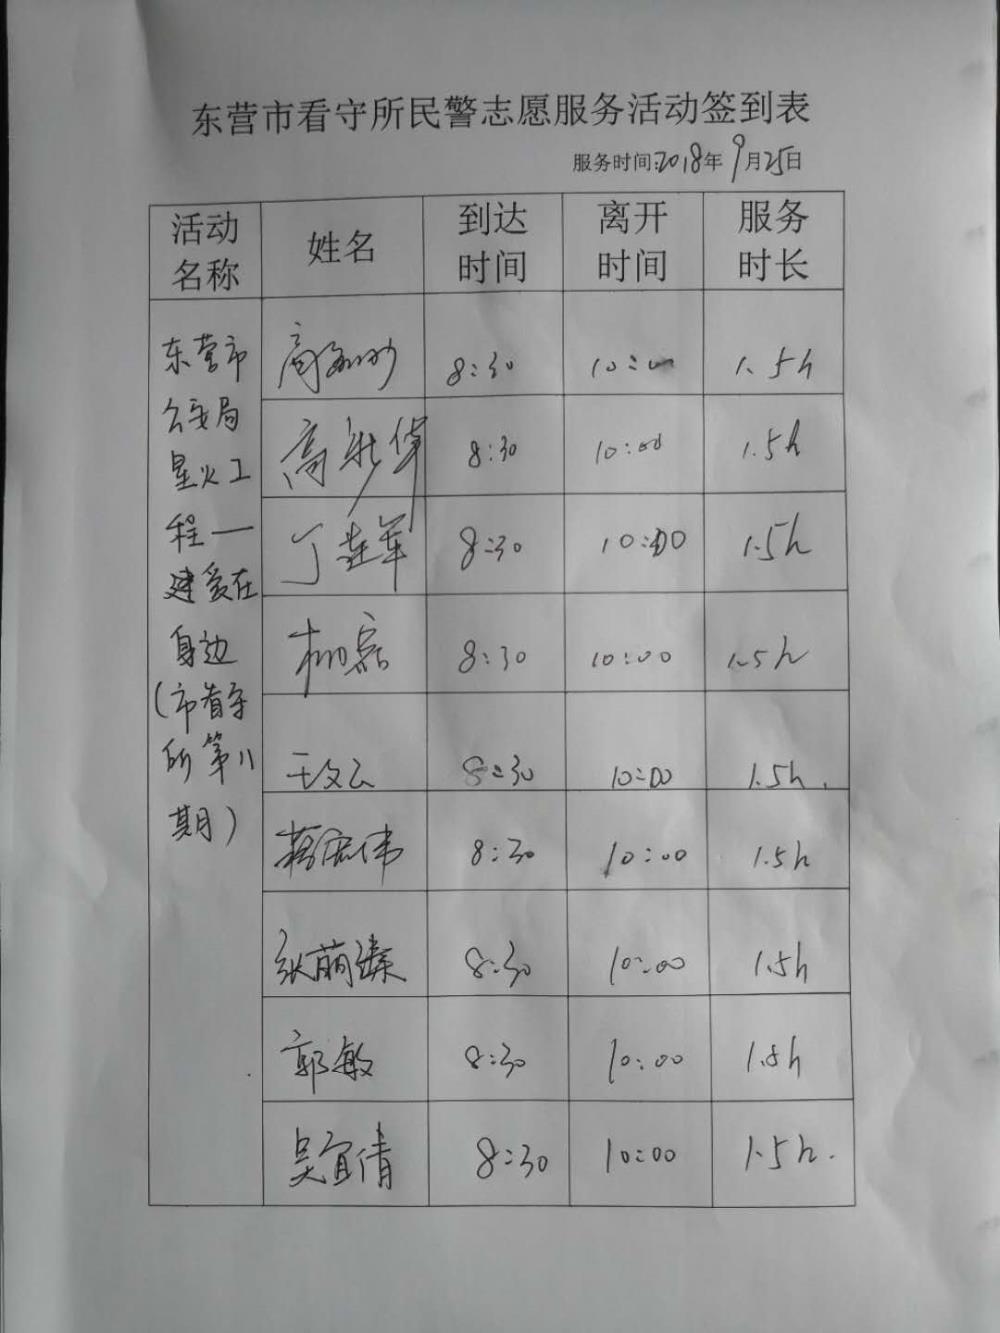 东营市看守所民警志愿服务活动签到表
服务时间:2018年9月25日
活动名称 姓名 到达时间 离开时间 服务时长
东营市
公安局
星火工
程一
建爱在
身边
(市看守
所第八
期)
8:30 10:00 1.5h
高新华 8:30 10:00 1.5h
丁连军 8:30 10:00 1.5h
柳磊 8:30 10:00 1.5h
王文云 8:30 10:00 1.5h.
蒋宏伟 8:30 10:00 1.5h
张萌臻 8:30 10:00 1.5h
郭敏 8:30 10:00 1.5h
吴宜倩 8:30 10:00 1.5h.